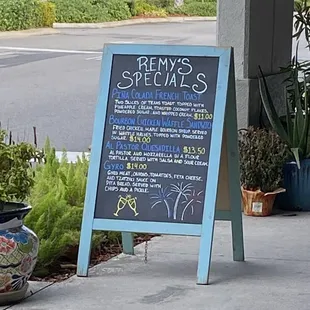 REMY'S
SPECIALS
PINA COLADA FRENCH TOAST
TWO SLICES OF TEXAS TOAST, TOPPED WITH
CARAMEL, TOASTED COCONUT FLAKES,
POWDERED SUGAR, AND WHIPPED CREAM $11.00
BOURBON CHICKEN WAFFLE SANDWICH
FRIED CHICKEN, MAPLE BOURBON SYRUP
IN WAFFLE
SUGAR $14.00
AL PASTOR QUESADILLA $13.50
AND MOZZARELLA IN A FLOUR
TORTILLA SERVED WITH SALSA AND SOUR CREAM
GYRO $14.00
GYRO MEAT, ONION, TOMATOES, FETA CHEESE,
AND TZATZIKI SAUCE ON
PITA BREAD SERVED
WITH CHIPS AND A PICKLE